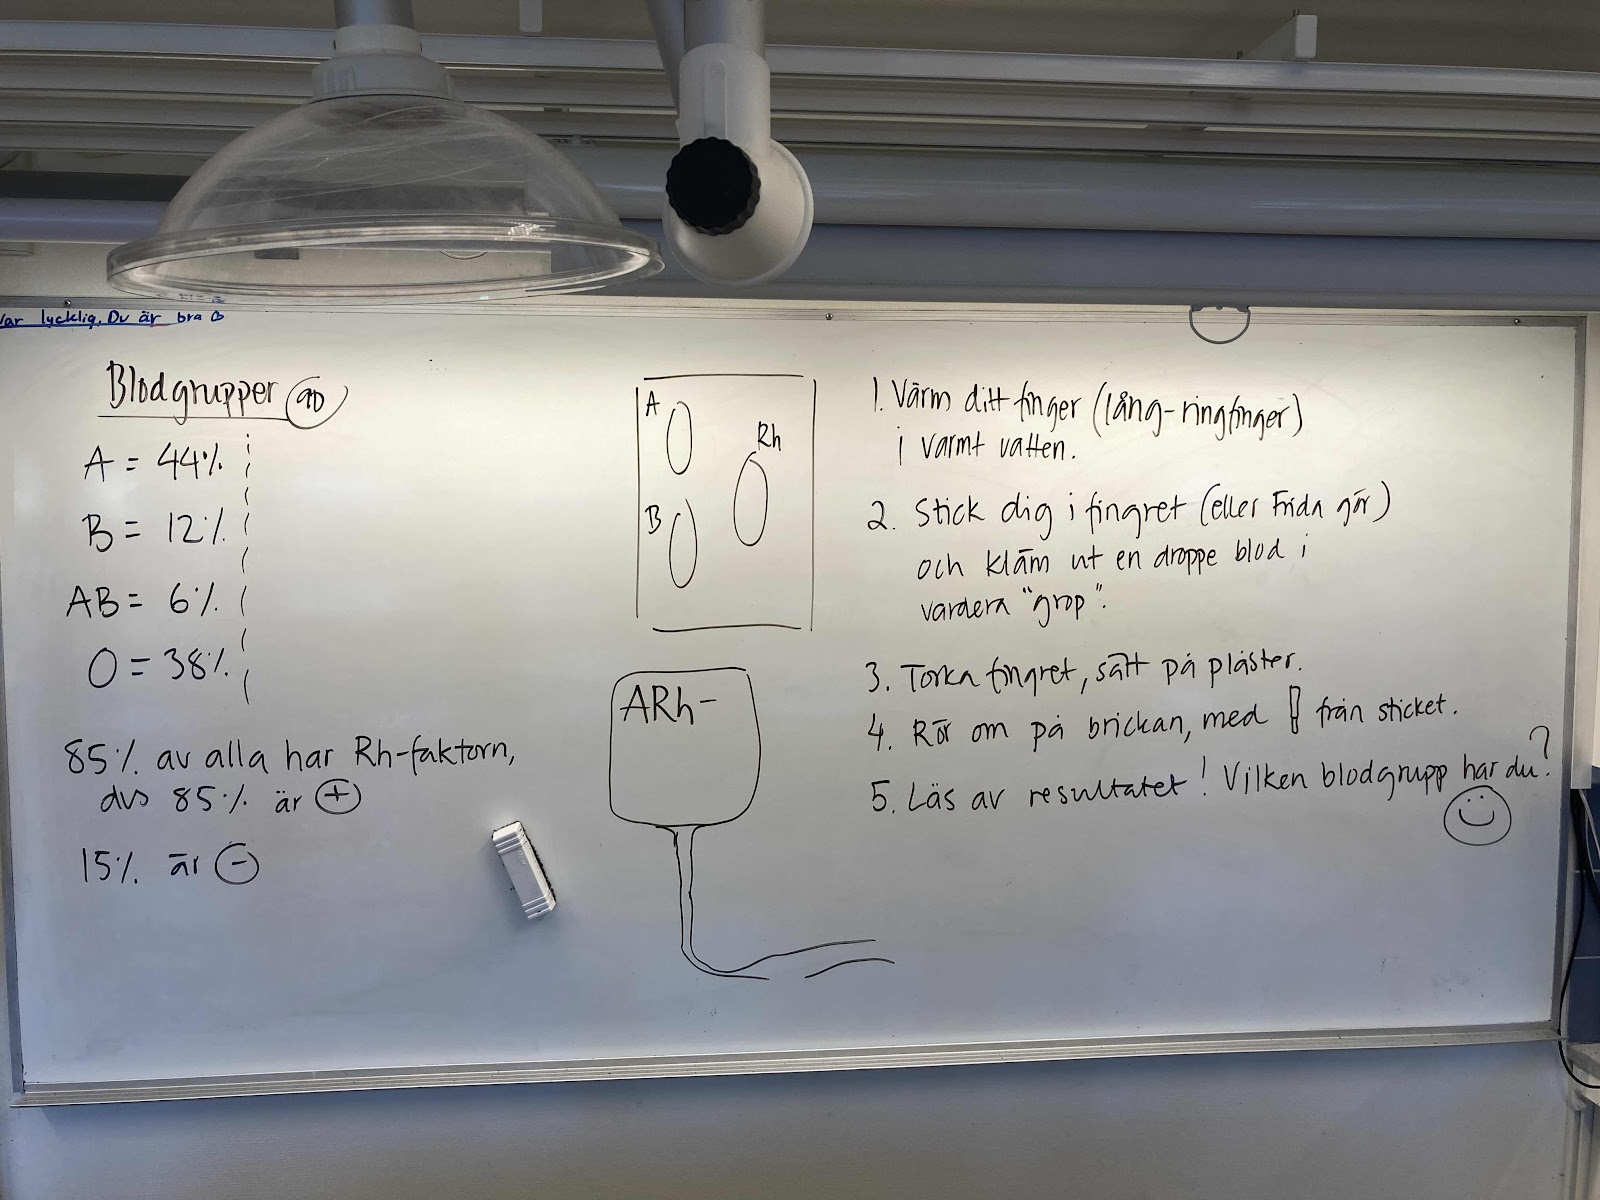 Var lycklig. Du är bra
Blodgrupper 9D
A = 44%
B = 12%
AB = 6%
O = 38%
85% av alla har Rh-faktorn,
dvs 85% är +
15% är -
A
Rh
B
ARh-
1. Värm ditt finger (lång-ringfinger)
i varmt vatten.
2. Stick dig i fingret (eller Frida gör)
och kläm ut en droppe blod i
vardera "grop".
3. Torka fingret, sätt på plåster.
4. Rör om på brickan, med från sticket.
5. Läs av resultatet! Vilken blodgrupp har du?